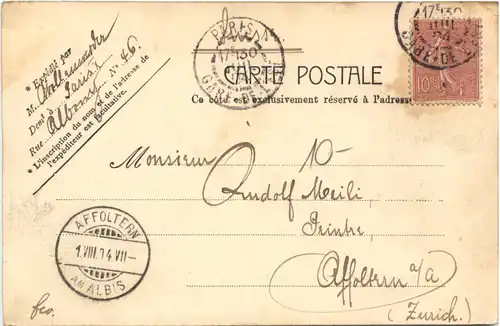 * Expédié par
M.
Demt à Paris
Rue Albouy N° 46.
* L'inscription du nom et de l'adresse de
l'expéditeur est facultative.
PARIS
17E 30
GARE-DE-L
17E 30
GARE-DE-L
10
CARTE POSTALE
Ce côté est exclusivement réservé à l'adresse
Monsieur 10-
Rudolf Meili,
Peintre,
Affoltern a/A
(Zurich.)
AFFOLTERN
1.VIII.04.VII-
AM ALBIS
fco.